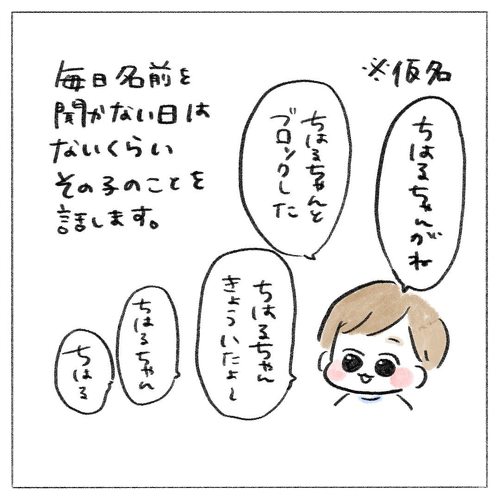 毎日名前を
聞かない日は
ないくらい
その子のことを
話します。
※仮名
ちはるちゃんがね
ちはるちゃんと
ブロックした
ちはるちゃん
きょういたよ〜
ちはるちゃん
ちはる